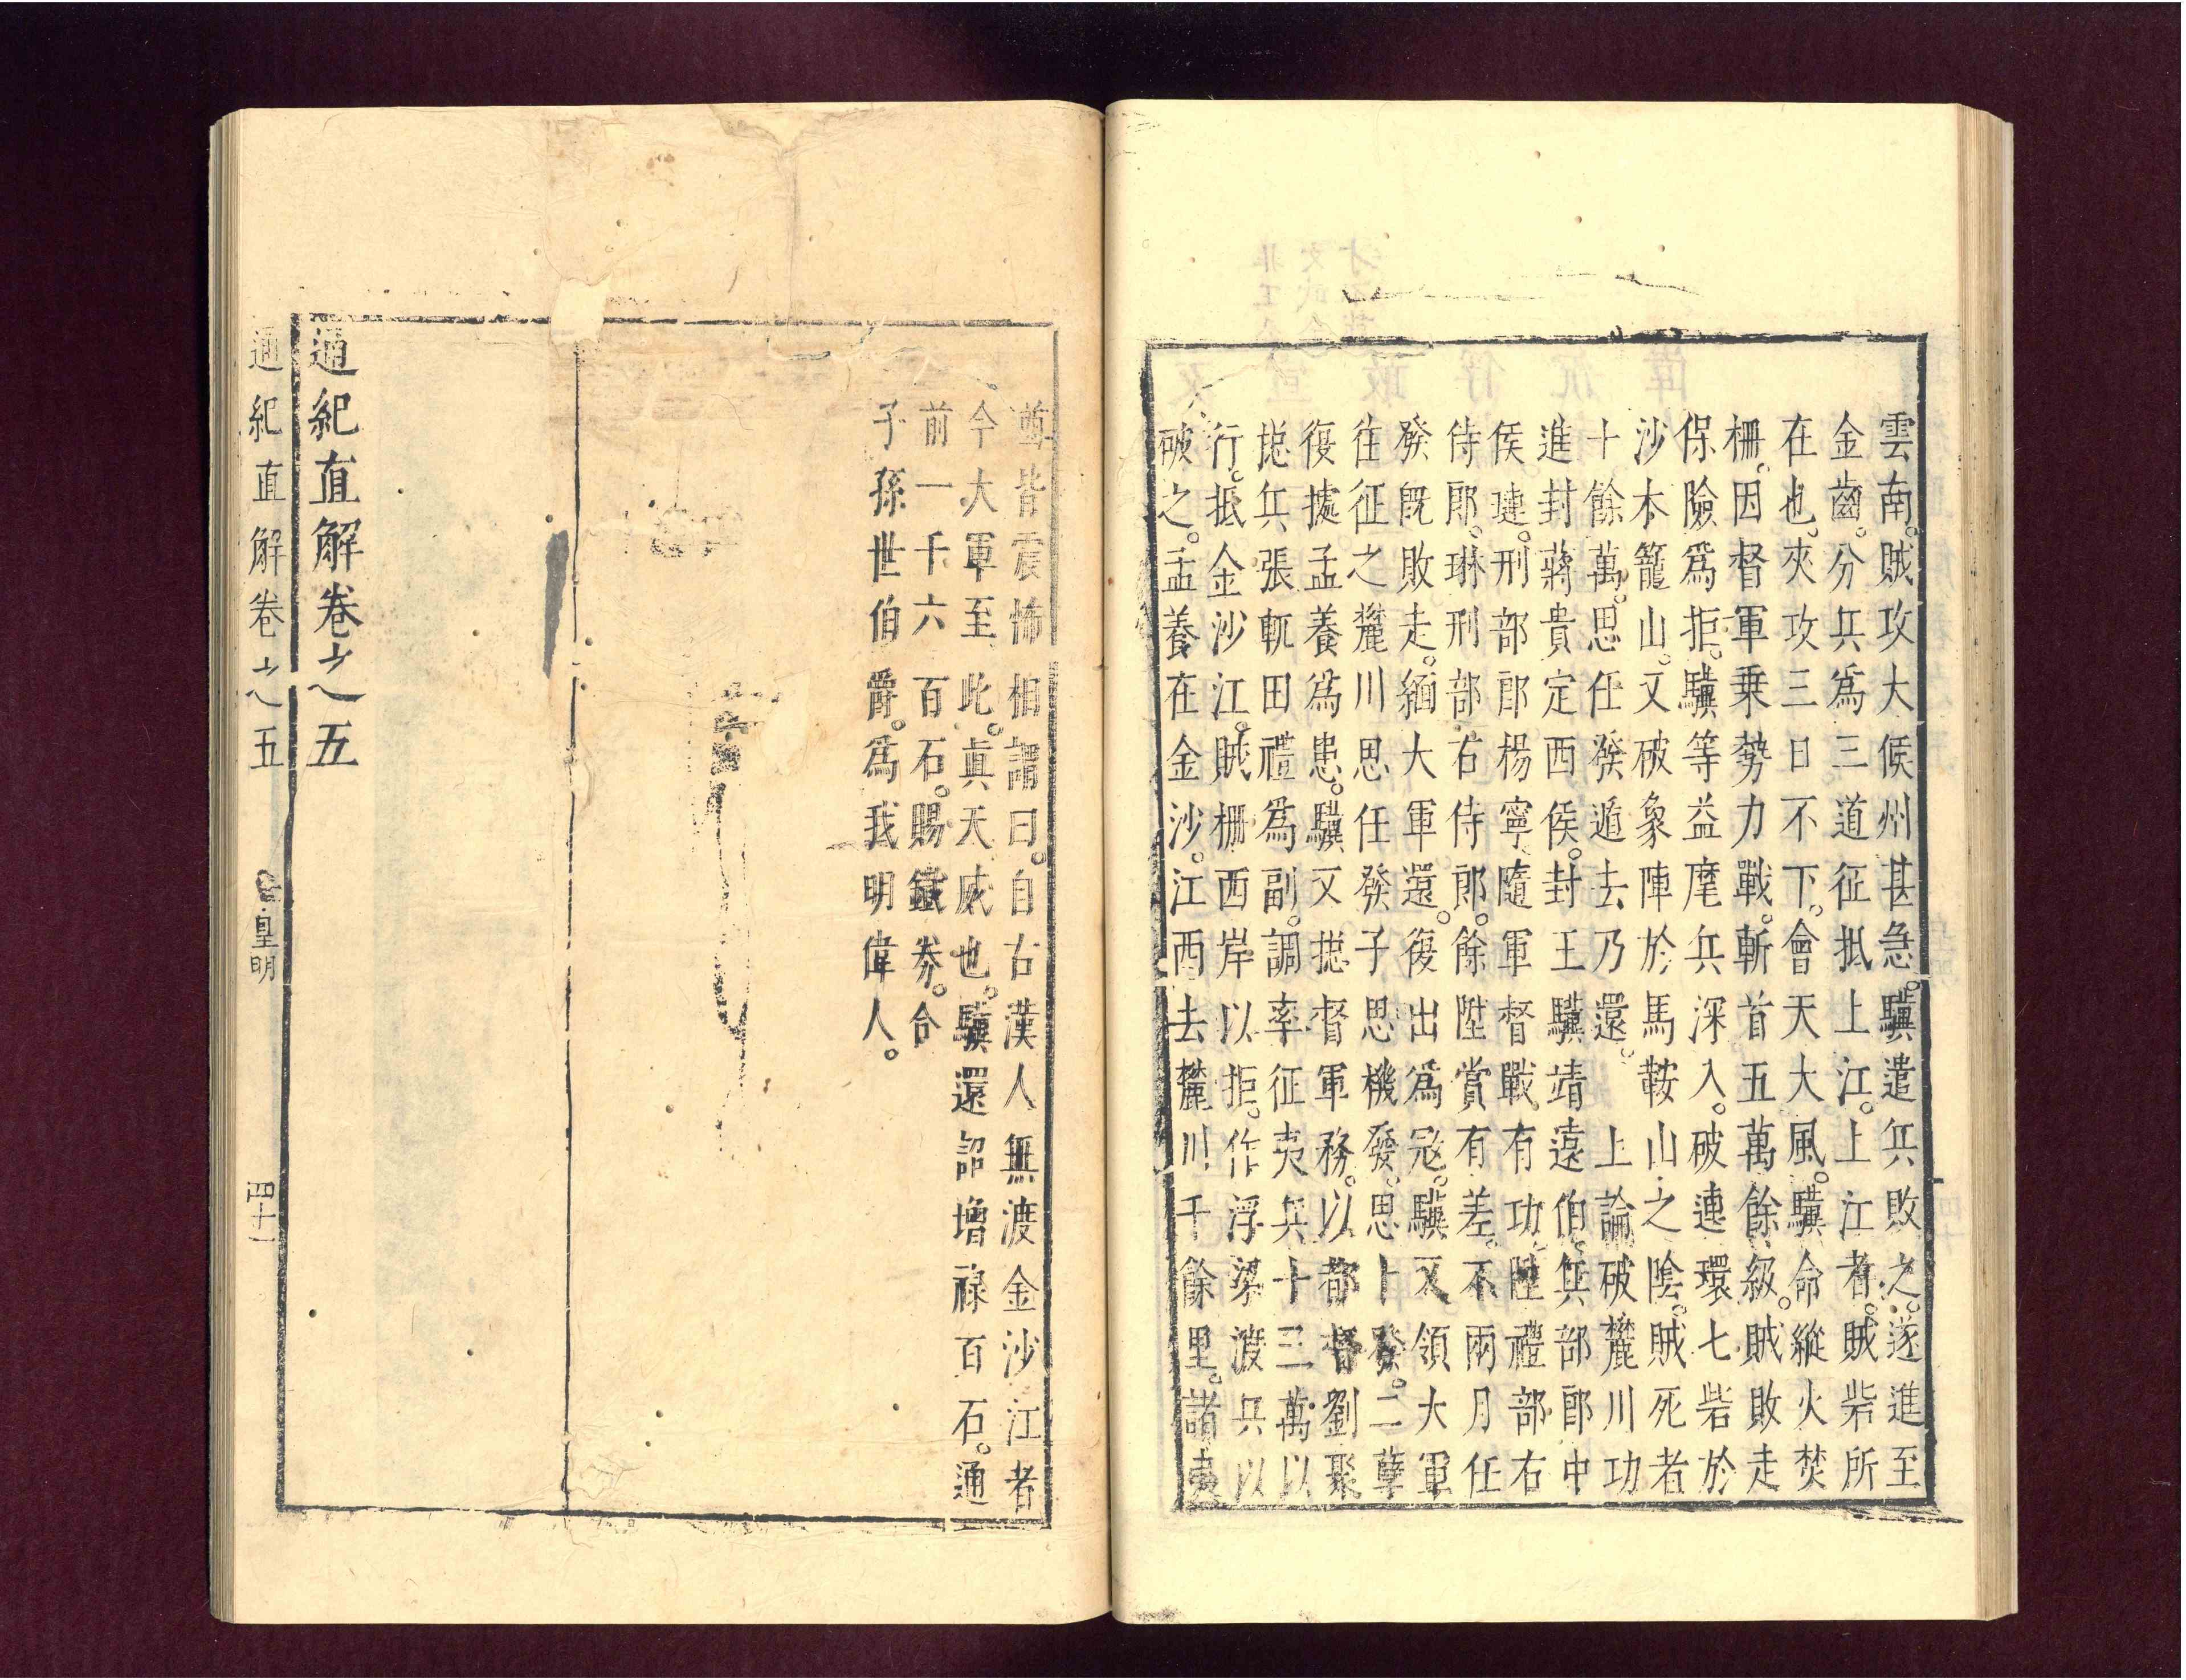 雲南。賊攻大侯州甚急。驥遣兵敗之。遂進至
金齒。分兵爲三道征抵上江。上江者。賊砦所
在也。夾攻三日不下。會天大風。驥命縱火焚
柵。因督軍乗勢力戰。斬首五萬餘級。賊敗走
保險爲拒。驥等益麾兵深入。破連環七砦於
沙木籠山。又破象陣於馬鞍山之陰。賊死者
十餘萬。思任發遁去乃還。　上論破麓川功
進封蔣貴定西侯。封王驥靖遠伯。兵部郎中
侯璡。刑部郎楊寧。隨軍督戰。有功。陞禮部右
侍郎。琳刑部右侍郎。餘陞賞有差。不兩月任
發既敗走。緬大軍還。復出爲冦。驥又領大軍
往征之麓川思任發子思機發。思卜發。二孽
復據孟養爲患。驥又捴督軍務。以都督劉聚
捴兵張軏田禮爲副。調率征夷兵十三萬以
行。抵金沙江。賊柵西岸以拒。作浮梁渡兵以
破之。孟養在金沙。江西去麓川千餘里。諸夷
酋皆震怖相謂曰。自古漢人無渡金沙江者
今大軍至此。真天威也。驥還詔增祿百石。通
前一千六百石。賜鐵券。令
子孫世伯爵。爲我明偉人。
通紀直解卷之五
通紀直解卷之五　皇明　四十一